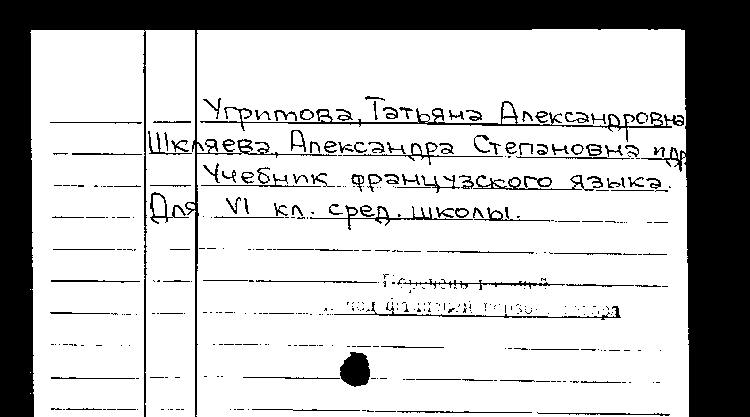 Угримова, Татьяна Александровна
Шкляева, Александра Степановна и др
Учебник французского языка.
Для VI кл. сред. школы.
под фамилией первого автора